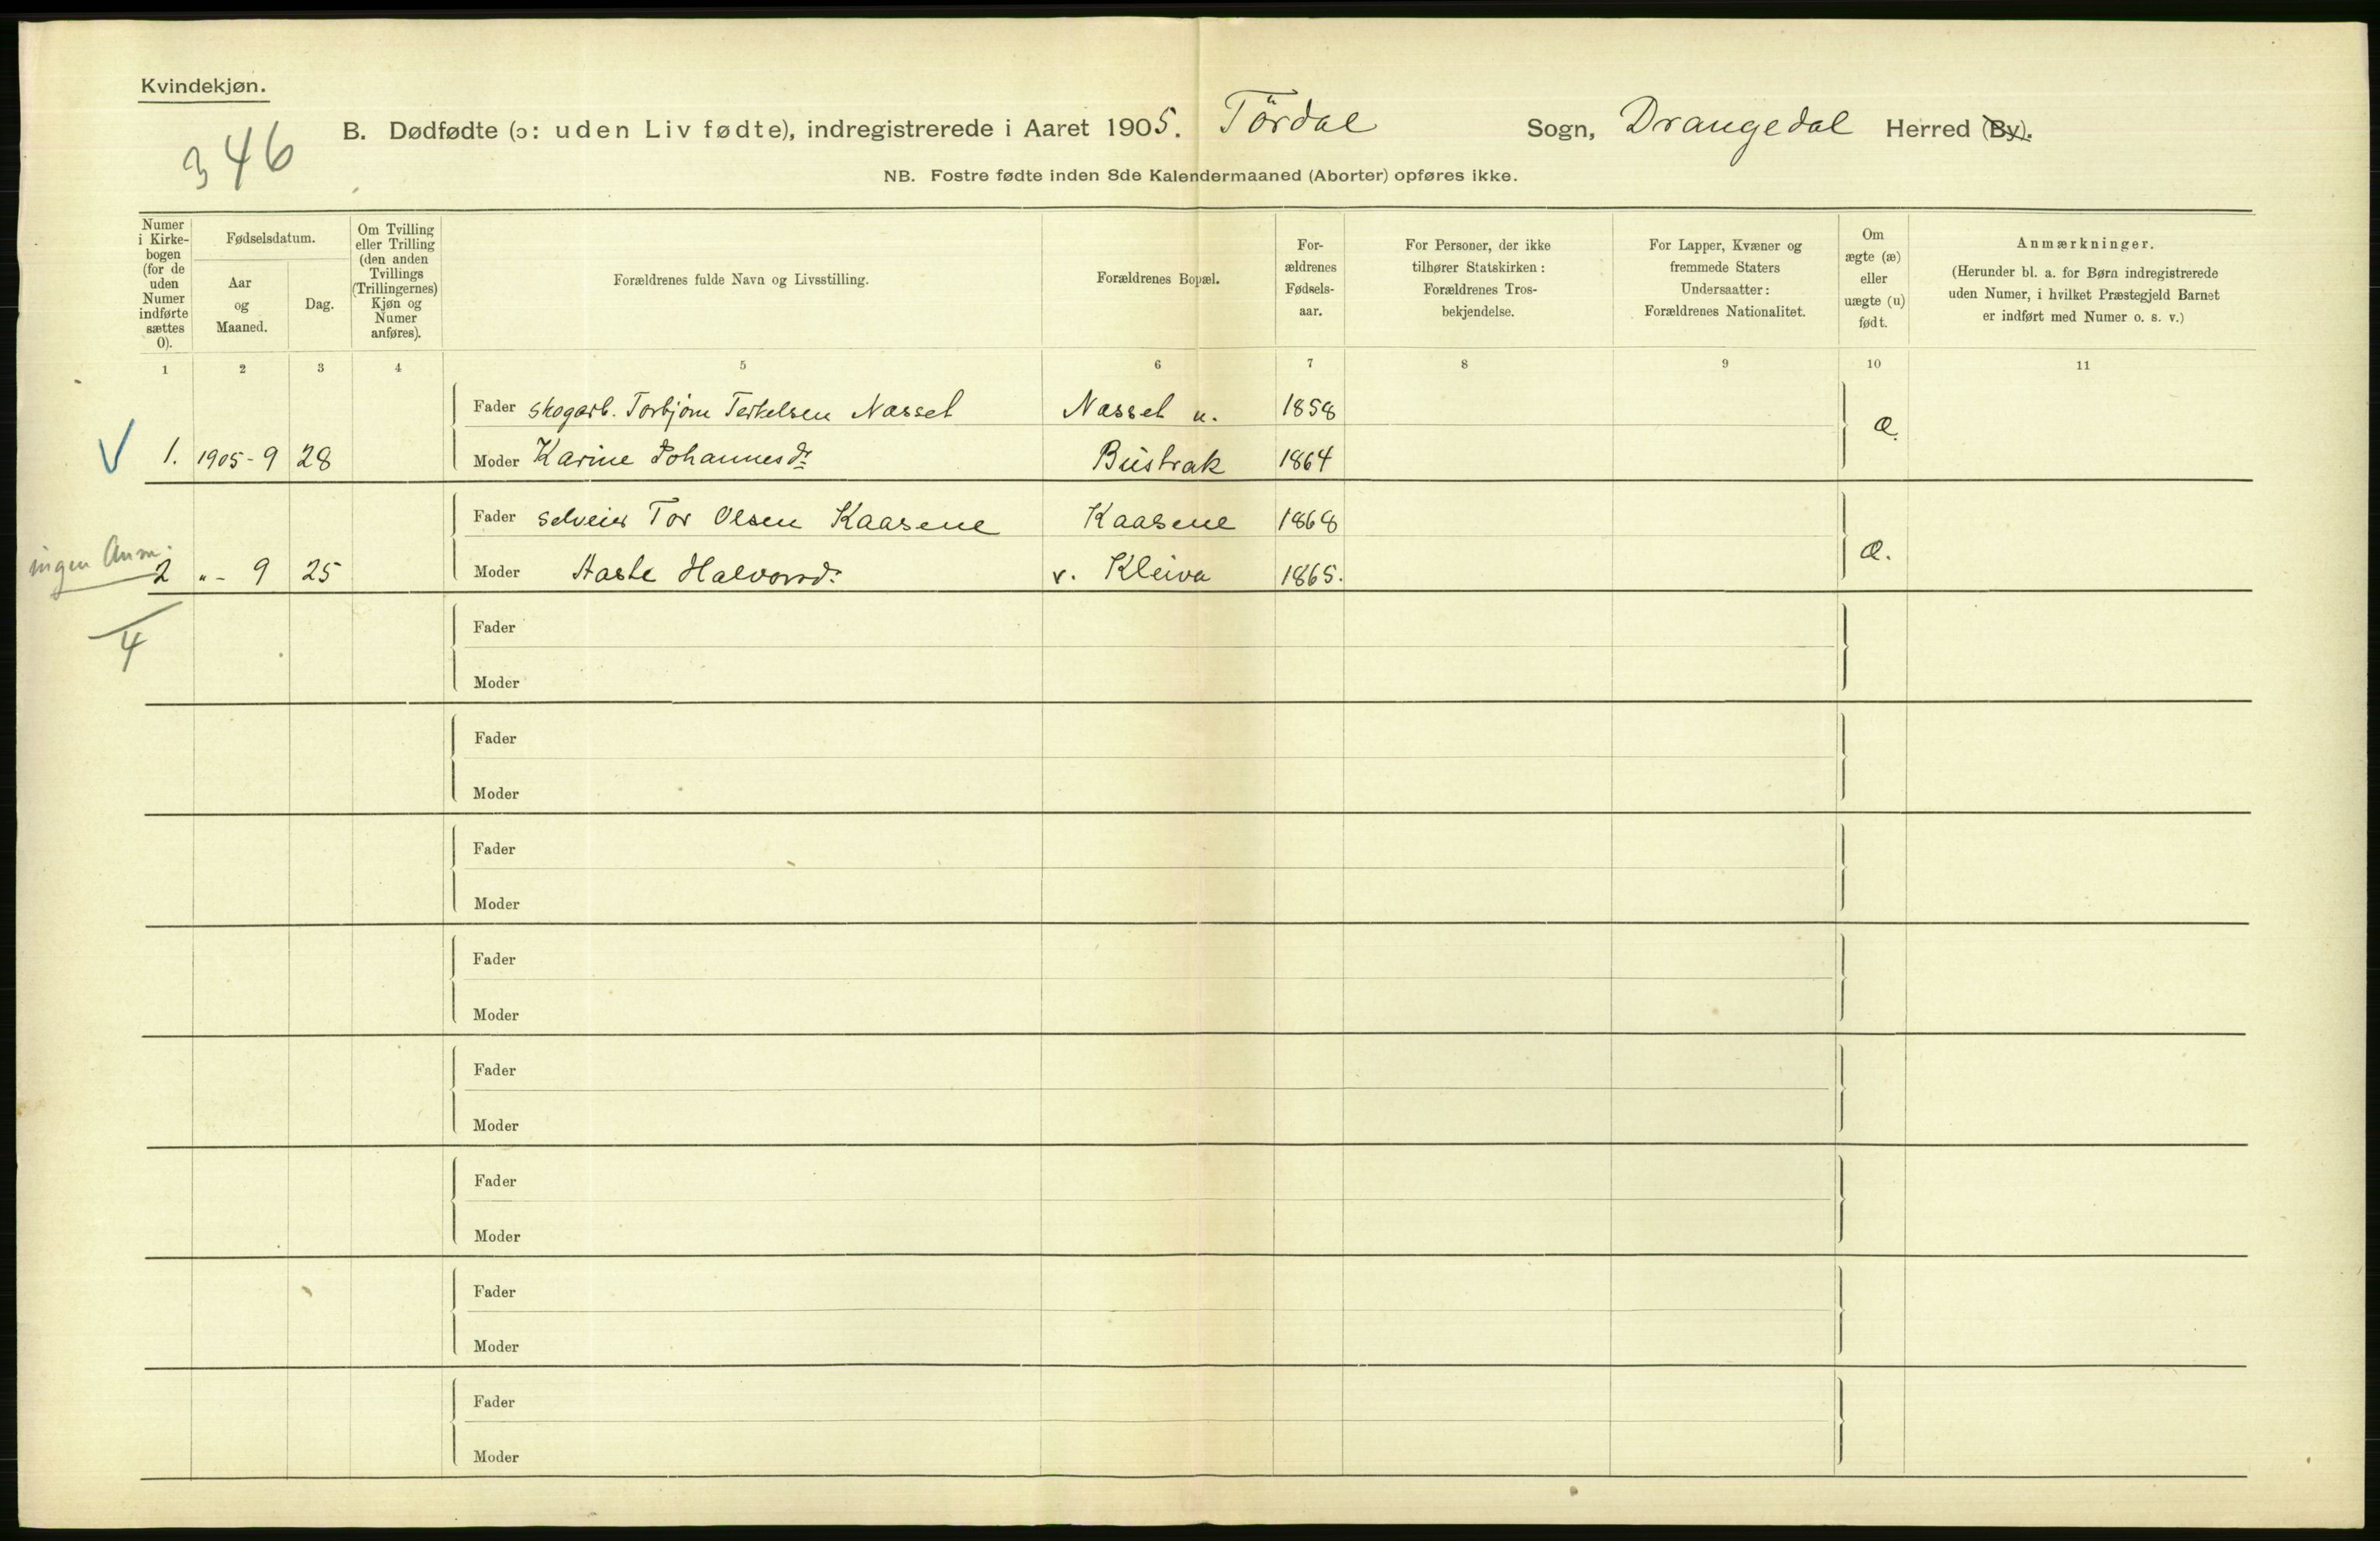 Kvindekjøn.
346
B. Dødfødte (ɔ: uden Liv fødte), indregistrerede i Aaret 1905. Tördal Sogn, Drangedal Herred (By).
NB. Fostre fødte inden 8de Kalendermaaned (Aborter) opføres ikke.
Numer i Kirke-bogen (for de uden Numer indførte sættes 0).
Fødselsdatum.
Aar og Maaned.
Dag.
Om Tvilling eller Trilling (den anden Tvillings (Trillingernes) Kjøn og Numer anføres).
Forældrenes fulde Navn og Livsstilling.
Forældrenes Bopæl.
For-ældrenes Fødsels-aar.
For Personer, der ikke tilhører Statskirken: Forældrenes Tros-bekjendelse.
For Lapper, Kvæner og fremmede Staters Undersaatter: Forældrenes Nationalitet.
Om ægte (æ) eller uægte (u) født.
Anmærkninger.
(Herunder bl. a. for Børn indregistrerede uden Numer, i hvilket Præstegjeld Barnet er indført med Numer o. s. v.)
1 2 3 4 5 6 7 8 9 10 11
Fader skogarb. Torbjörn Terkelsen Næsset Næsset u. 1858
V 1. 1905-9 28 Moder Karine Johannesdr Büstrak 1864 æ.
Fader selveier Tor Olsen Kaasene Kaasene 1868
ingen Anm. 2 "- 9 25 Moder Aaste Halvorsd: v. Kleiva 1865. æ.
4
Fader
Moder
Fader
Moder
Fader
Moder
Fader
Moder
Fader
Moder
Fader
Moder
Fader
Moder
Fader
Moder